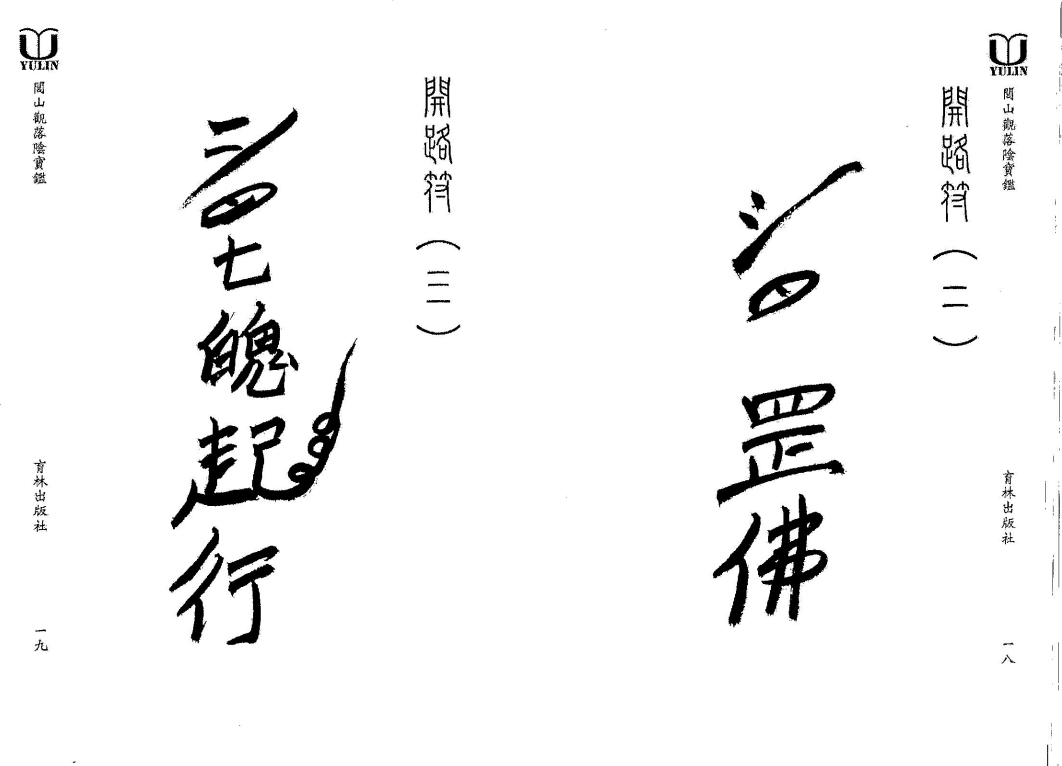 YULIN
閭山觀落陰寶鑑
育林出版社
一八
開路符（二）
罡佛
開路符（三）
七魄起行
YULIN
閭山觀落陰寶鑑
育林出版社
一九